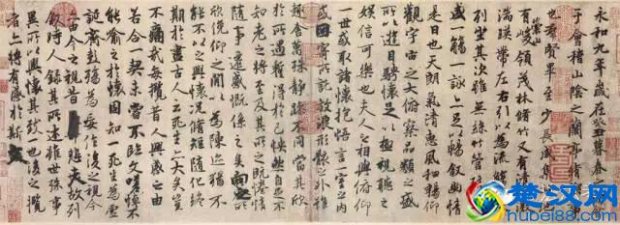 永和九年歲在癸丑暮春之初會
于會稽山陰之蘭亭脩稧事
也群賢畢至少長咸集此地
有崇山峻領茂林脩竹又有清流激
湍暎帶左右引以為流觴曲水
列坐其次雖無絲竹管弦之
盛一觴一詠亦足以暢敘幽情
是日也天朗氣清惠風和暢仰
觀宇宙之大俯察品類之盛
所以遊目騁懷足以極視聽之
娛信可樂也夫人之相與俯仰
一世或取諸懷抱悟言一室之內
或因寄所託放浪形骸之外雖
趣舍萬殊靜躁不同當其欣
於所遇蹔得於己怏然自足不
知老之將至及其所之既惓情
隨事遷感慨係之矣向之所
欣俛仰之閒以為陳迹猶不
能不以之興懷況脩短隨化終
期於盡古人云死生亦大矣豈
不痛哉每攬昔人興感之由
若合一契未嘗不臨文嗟悼不
能喻之於懷固知一死生為虛
誕齊彭殤為妄作後之視今
亦由今之視昔悲夫故列
敘時人錄其所述雖世殊事
異所以興懷其致一也後之攬
者亦將有感於斯文
楚汉网
hubei88.com